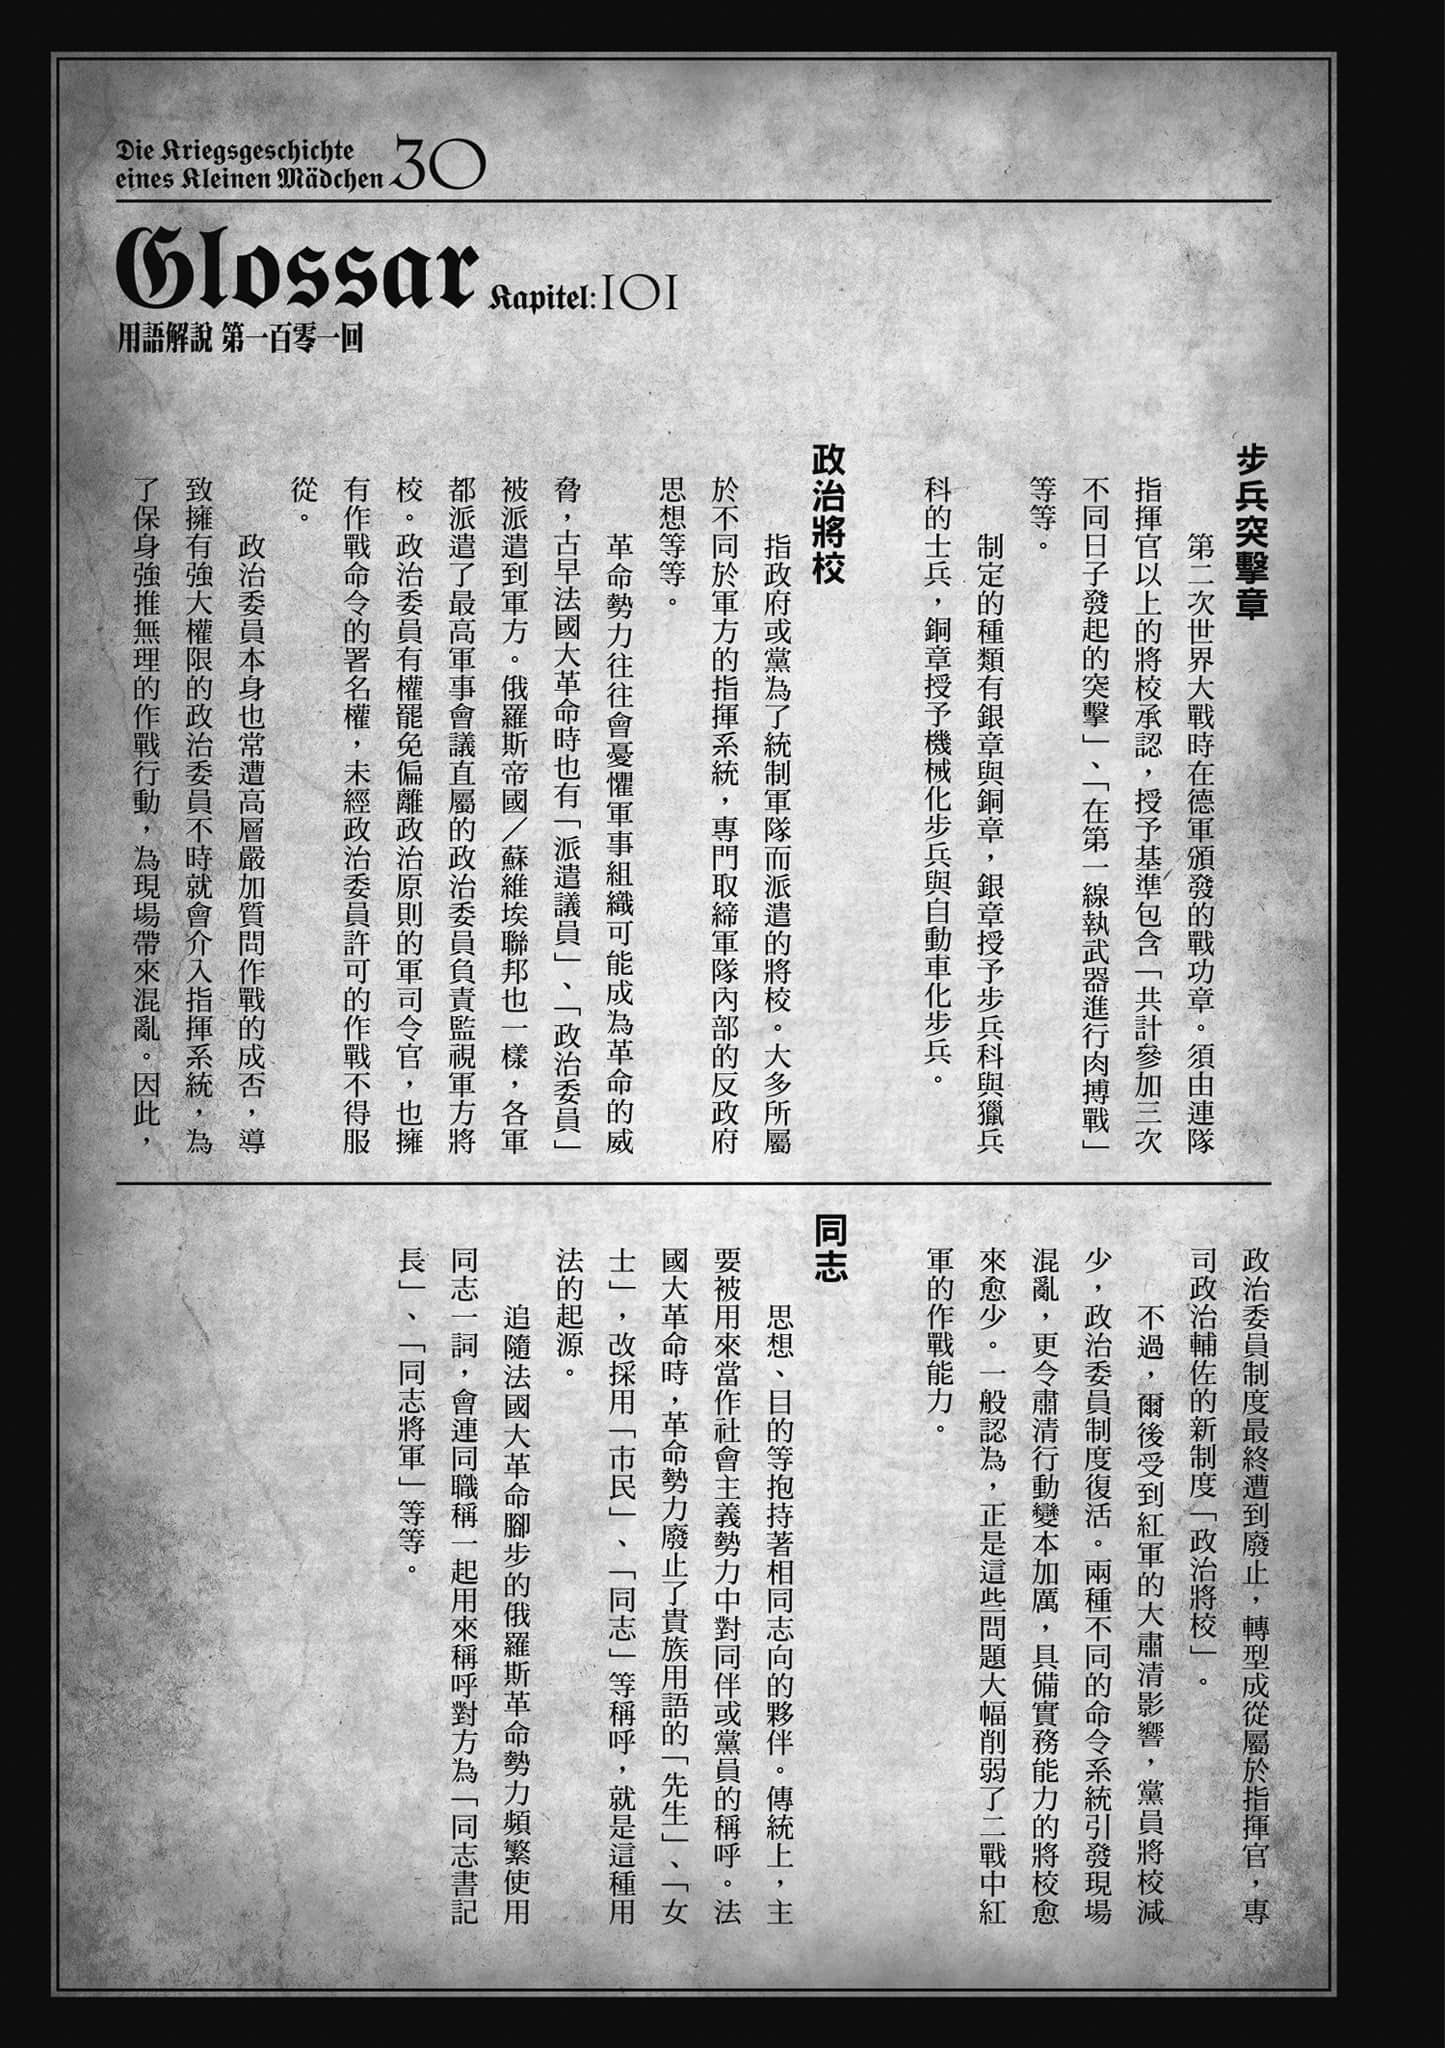 Die Kriegsgeschichte
eines Kleinen Mädchen 30
Glossar Kapitel: 101
用語解說 第一百零一回
步兵突擊章
第二次世界大戰時在德軍頒發的戰功章。須由連隊
指揮官以上的將校承認，授予基準包含「共計參加三次
不同日子發起的突擊」、「在第一線執武器進行肉搏戰」
等等。
制定的種類有銀章與銅章，銀章授予步兵科與獵兵
科的士兵，銅章授予機械化步兵與自動車化步兵。
政治將校
指政府或黨為了統制軍隊而派遣的將校。大多所屬
於不同於軍方的指揮系統，專門取締軍隊內部的反政府
思想等等。
革命勢力往往會憂懼軍事組織可能成為革命的威
脅，古早法國大革命時也有「派遣議員」、「政治委員」
被派遣到軍方。俄羅斯帝國／蘇維埃聯邦也一樣，各軍
都派遣了最高軍事會議直屬的政治委員負責監視軍方將
校。政治委員有權罷免偏離政治原則的軍司令官，也擁
有作戰命令的署名權，未經政治委員許可的作戰不得服
從。
政治委員本身也常遭高層嚴加質問作戰的成否，導
致擁有強大權限的政治委員不時就會介入指揮系統，為
了保身強推無理的作戰行動，為現場帶來混亂。因此，
政治委員制度最終遭到廢止，轉型成從屬於指揮官，專
司政治輔佐的新制度「政治將校」。
不過，爾後受到紅軍的大肅清影響，黨員將校減
少，政治委員制度復活。兩種不同的命令系統引發現場
混亂，更令肅清行動變本加厲，具備實務能力的將校愈
來愈少。一般認為，正是這些問題大幅削弱了二戰中紅
軍的作戰能力。
同志
思想、目的等抱持著相同志向的夥伴。傳統上，主
要被用來當作社會主義勢力中對同伴或黨員的稱呼。法
國大革命時，革命勢力廢止了貴族用語的「先生」、「女
士」，改採用「市民」、「同志」等稱呼，就是這種用
法的起源。
追隨法國大革命腳步的俄羅斯革命勢力頻繁使用
同志一詞，會連同職稱一起用來稱呼對方為「同志書記
長」、「同志將軍」等等。